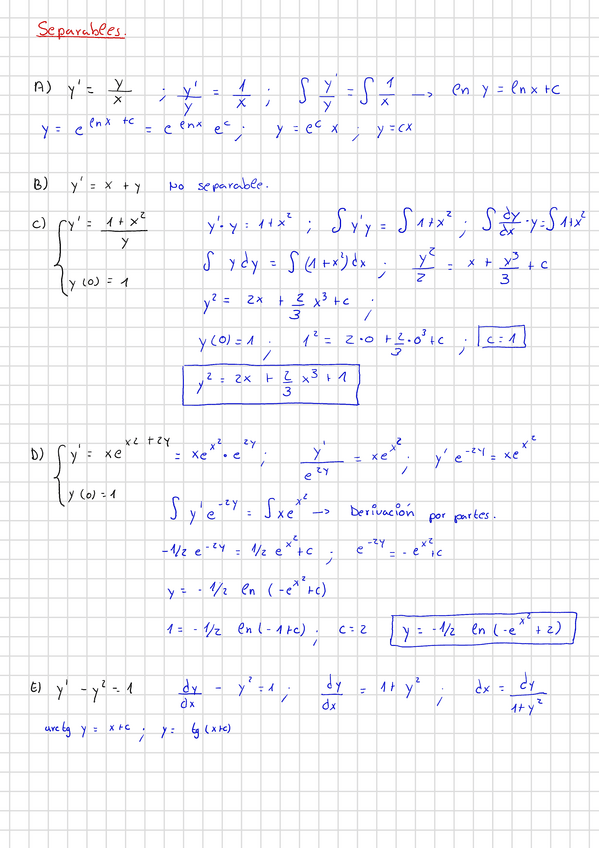 Separables.
A) y' = y/x ; y'/y = 1/x ; ∫ y'/y = ∫ 1/x → ln y = ln x + c
y = e^(ln x + c) = e^(ln x) e^c ; y = e^c x ; y = cx
B) y' = x + y No separable.
C) { y' = (1 + x²)/y y'·y = 1 + x² ; ∫ y'y = ∫ 1 + x² ; ∫ dy/dx · y = ∫ 1 + x²
y(0) = 1 ∫ y dy = ∫ (1 + x²) dx ; y²/2 = x + x³/3 + c
y² = 2x + 2/3 x³ + c ;
y(0) = 1 ; 1² = 2·0 + 2/3·0³ + c ; c = 1
y² = 2x + 2/3 x³ + 1
D) { y' = xe^(x² + 2y) = xe^(x²) · e^(2y) ; y'/e^(2y) = xe^(x²) ; y' e^(-2y) = xe^(x²)
y(0) = 1
∫ y' e^(-2y) = ∫ xe^(x²) → Derivación por partes.
-1/2 e^(-2y) = 1/2 e^(x²) + c ; e^(-2y) = -e^(x²) + c
y = -1/2 ln (-e^(x²) + c)
1 = -1/2 ln (-1 + c) ; c = 2 y = -1/2 ln (-e^(x²) + 2)
E) y' - y² = 1 dy/dx - y² = 1 ; dy/dx = 1 + y² ; dx = dy/(1 + y²)
arctg y = x + c ; y = tg (x+c)